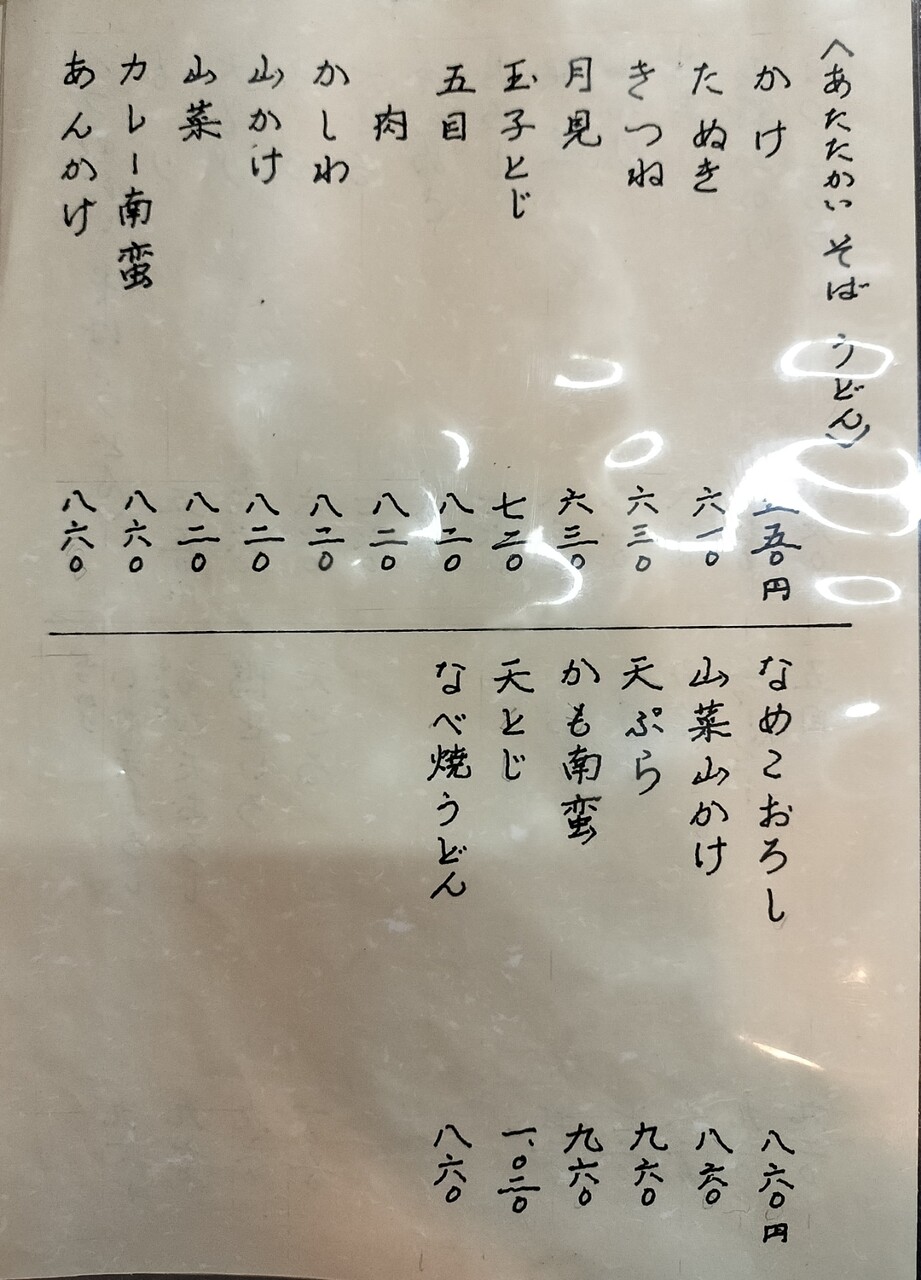 〈あたたかい そば うどん〉
かけ 五五〇円
たぬき 六一〇
きつね 六三〇
月見 六三〇
玉子とじ 七二〇
五目 八二〇
肉 八二〇
かしわ 八二〇
山かけ 八二〇
山菜 八二〇
カレー南蛮 八六〇
あんかけ 八六〇
なめこおろし 八六〇円
山菜山かけ 八六〇
天ぷら 九六〇
かも南蛮 九六〇
天とじ 一、〇二〇
なべ焼うどん 八六〇